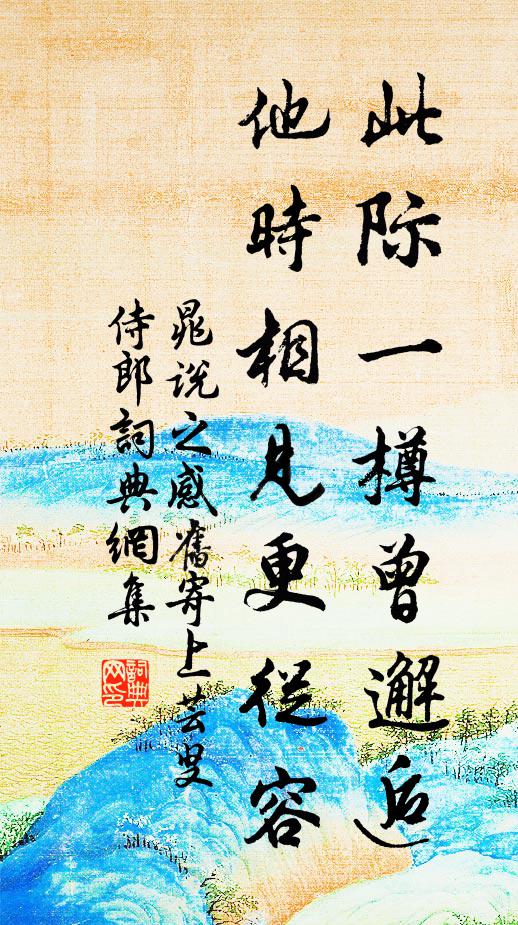 此际一樽曾邂逅
他時相見更從容
晁说之感舊寄上芸叟
侍郎詞典網集
詞典网印